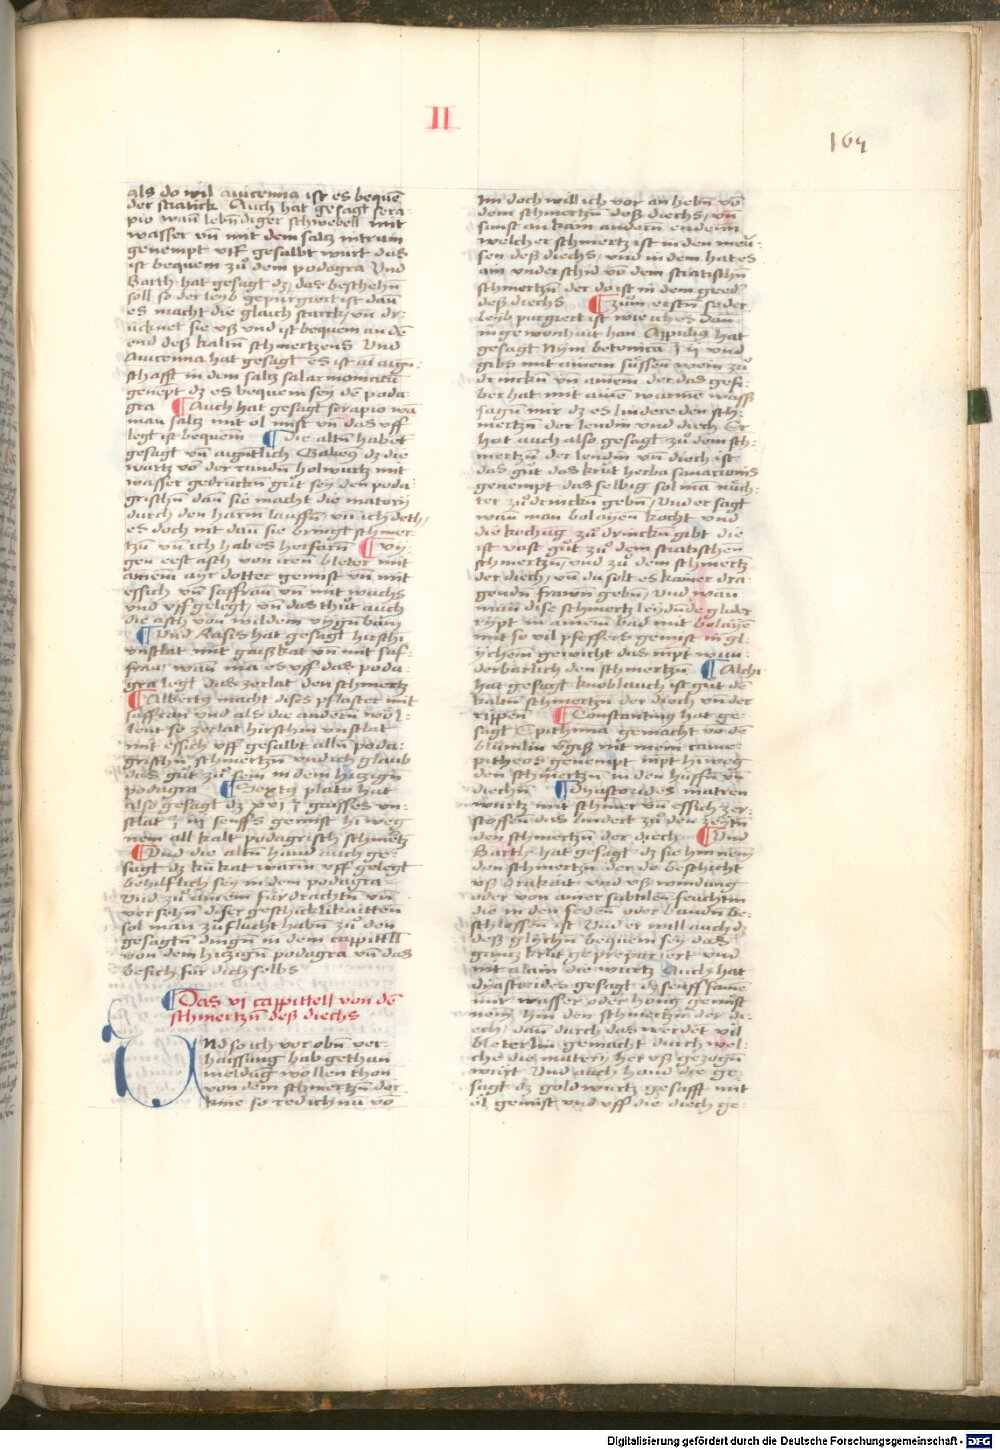 II
165
als do wil avicenna ist es bequē
der sciatick Auch hat gesagt sera-
pio wañ lebñdiger schwebell mit
wasser vñ mit dem saltz nitrum
genempt vff gesalbt wurt das
ist bequem zů dem podagra Vnd
Barth hat gesagt dz das beschehñ
soll so der leyb gepurgiert ist dañ
es macht die glaich starck vñ dr-
ücknet sie vß vnd ist bequem an dē
end deß kaltñ schmertzens Vnd
Avicenna hat gesagt es ist ai aign-
schafft in dem saltz salarmoniacū
genēpt dz es bequem sey dē poda-
gra ¶ Auch hat gesagt serapio wa
man saltz mit öl mist vñ das vff
legt ist bequem ¶ die altñ habet
gesagt vñ aigntlich Galieng dz die
wurtz vō der rundñ holwurtz mit
wasser gedruckñ gůt sey den poda-
grischñ dañ sie macht die matery
durch den harm lauffñ vñ ich
es doch nit dañ sie bringt schmer-
tzñ vñ ich hab es herfarñ ¶ vy-
gen eest asch von iren bleter mit
ainem ayr dotter gemist vñ mit
essich vñ saffran vñ mit wachs
vnd vff gelegt vñ das thůt auch
die asch von wildem vygnbam
¶ Vnd Rasis hat gesagt hirschi
vnslat mit gaißkat vñ mit saf-
fran wañ ma es vff das poda-
gra legt das zerlat den schmertz
¶ Albertg macht dises pflaster mit
saffran vnd als die andern wöl-
lent so zerlat hirschin vnslat
mit essich vff gesalbt allñ poda-
grischñ schmertzñ vnd ich glaub
das gůt zů sein in dem hitzign
podagra ¶ Sextg plato hat
also gesagt dz xvi ʒ gaisses vn-
slat ʒ iij senffs gemist hi weg
nem all kalt podagrisch schmetz
¶ Vnd die altñ hand auch ge-
sagt dz kükat warm vff gelegt
behilflich sey in dem podagra
Vnd zů ainem fürdrachtñ vñ
versehñ diser geschicklikaitten
sol man zů flucht habñ zů den
gesagtñ dingñ in dem cappittell
von dem hitzigñ podagra vñ das
besich für dich selbs
¶ Das vj cappittell von dē
schmertzñ deß diechs
Vnd so ich vor obñ ver-
haissung hab gethan
meldūg wöllen thon
von dem schmertzñ der
knie so red ich nū vō
Im doch will ich vor an hebñ vō
dem schmertzñ deß diechs vñ
sunst an kain andern enden
welcher schmertz ist in den meü-
sen deß diechs vnd in dem hat es
ain vnderschid vō dem sciatischñ
schmertzñ der do ist in dem geed
deß diechs ¶ zům erstñ so der
leyb purgiert ist wie ich es dañ
in gewonhait han Appulig hat
gesagt Nym betonica ʒ ij vnd
gibs mit ainem süssen wein zů
drinckñ vñ ainem der das gefi-
ber hat mit ainē warme wasß
sagñ mir dz es lindere den sch-
mertzñ der lendin vnd diech Er
hat auch also gesagt zů dem sch-
mertzñ der lendin vñ diech ist
das gůt das krut herba sanationis
genempt das selbig sol mā nüch-
ter zů drinckñ gebñ Vnd er sagt
wañ man bolayen kocht vnd
die kochūg zů drinckñ gibt die
ist vast gůt zů dem sciatischen
schmertzñ vnd zů dem schmertz
der diech vñ du solt es kainer dra-
gendñ frawñ gebñ Vnd wan
man dise schmertz leydūde glider
rypt in ainem bad mit bolayē
mit so vil pfeffers gemist in gl-
ychem gewicht das nipt wun-
derbarlich den schmertzñ ¶ Alchi
hat gesagt knoblauch ist gůt dē
kaltñ schmertzñ der diech vñ der
rippen ¶ Constanting hat ge-
sagt Epithima gemacht vō dē
blůmlin vgiß mit mein came-
pitheos genempt nipt hi weg
den schmertzñ in den hüffñ vñ
diechñ ¶ dyascorides matren
wurtz mit schmer vñ essich zer-
stossen das lindert zů den zeytñ
den schmertzñ der diech ¶ Vnd
Barth hat gesagt dz sie hin nem
den schmertzñ der do beschicht
vß drakait vnd vß windung
oder von ainer subtilen feuchtin
die in den seden oder bandñ be-
schlossen ist Vnd er will auch dz
deß glychñ bequem sey das
gantz krut gepreperiert vnd
nit alain die wurtz Auch hat
dyascorides gesagt dz senff same
mit wasser oder honig gemist
nem hin den schmertzñ der di-
ech dañ durch das werdet vil
bleterlin gemacht durch wel-
che die matery her vß gezogñ
wurt Vnd auch hand die ge-
sagt dz goldwurtz gesafft mit
öl gemist vnd vff die diech ge-
Digitalisierung gefördert durch die Deutsche Forschungsgemeinschaft - DFG